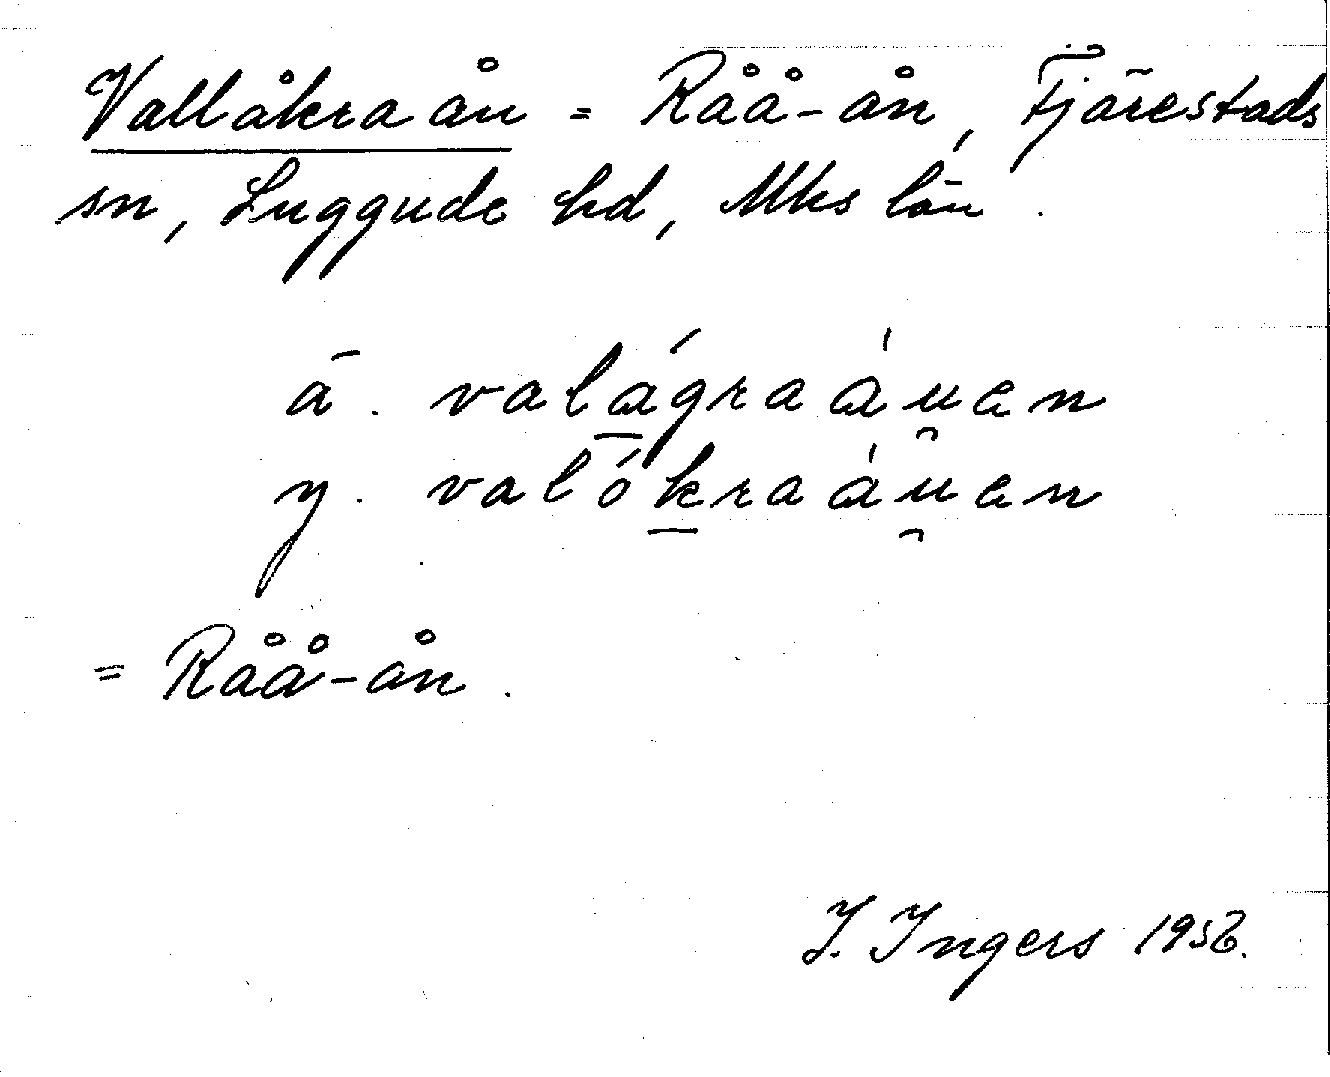 Vallåkraån = Råå-ån, Fjärestads
sn, Luggude hd, Mhs län.
ä. valágraáu̯en
y. valókraáu̯en
= Råå-ån.
I. Ingers 1956.